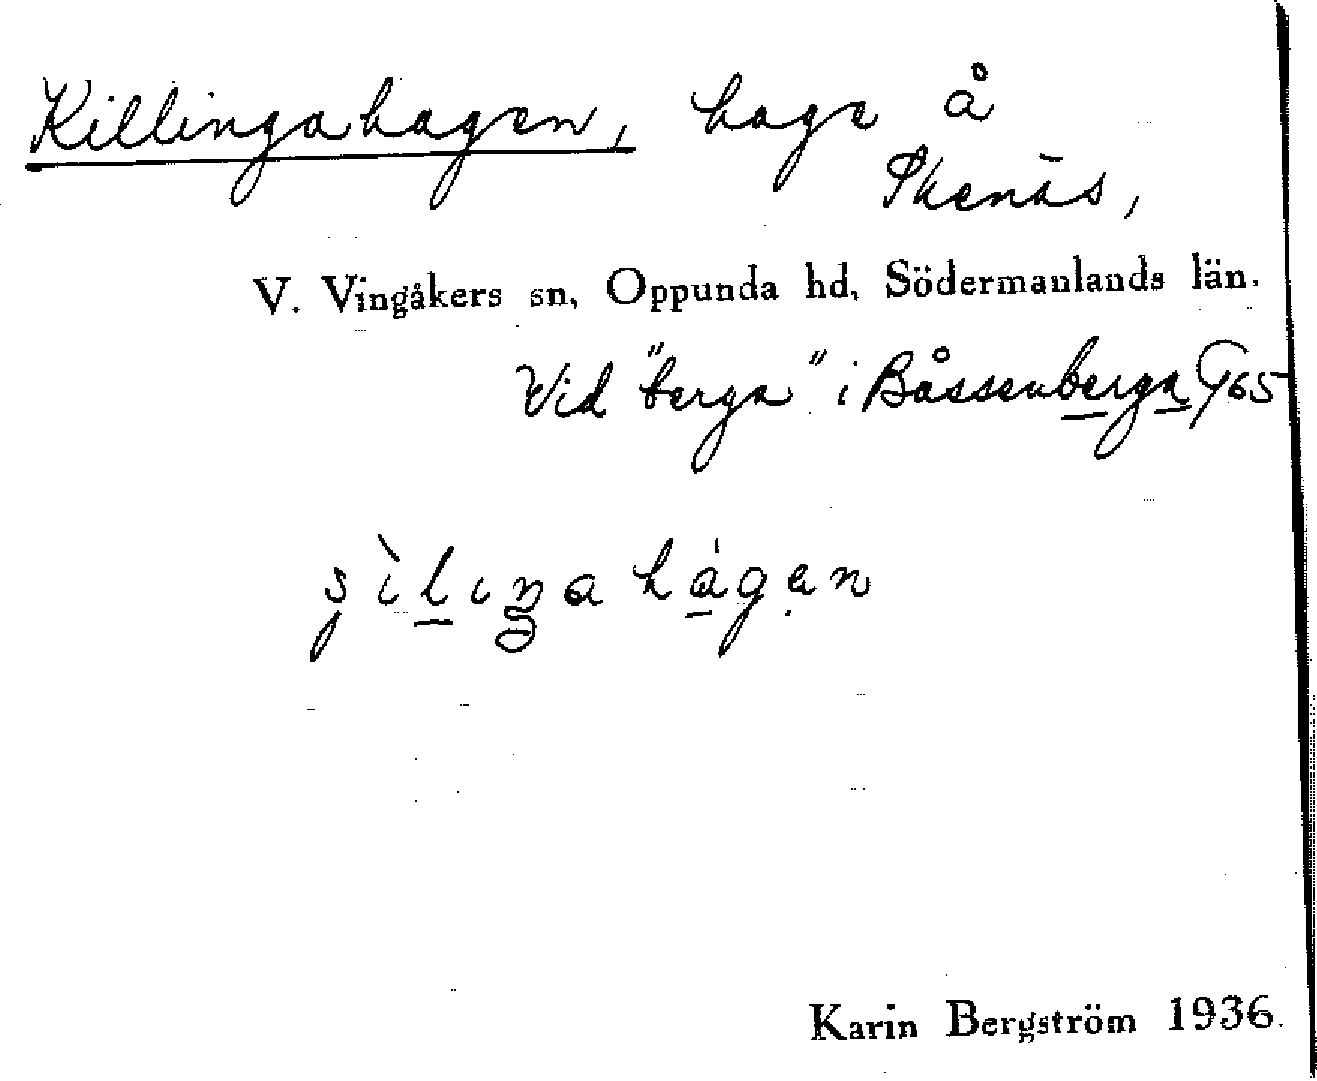 Killingahagen, hage å
Skenäs,
V. Vingåkers sn, Oppunda hd, Södermanlands län.
Vid "berga" i Båssenberga 965
hagen
Karin Bergström 1936.